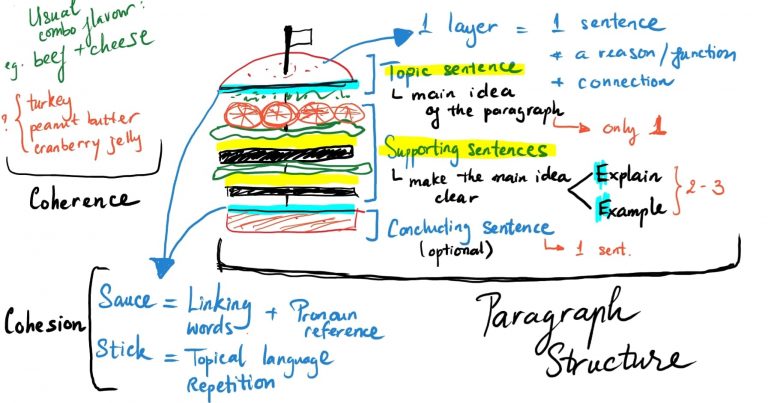 Usual
combo flavour:
eg. beef + cheese
? turkey
peanut butter
cranberry jelly
Coherence
1 layer = 1 sentence
* a reason/function
+ connection
Topic sentence
main idea
of the paragraph
only 1
Supporting sentences
make the main idea
clear
Explain
Example
2-3
Concluding sentence
(optional)
1 sent.
Cohesion
Sauce = Linking
words + Pronoun
reference
Stick = Topical language
Repetition
Paragraph
Structure